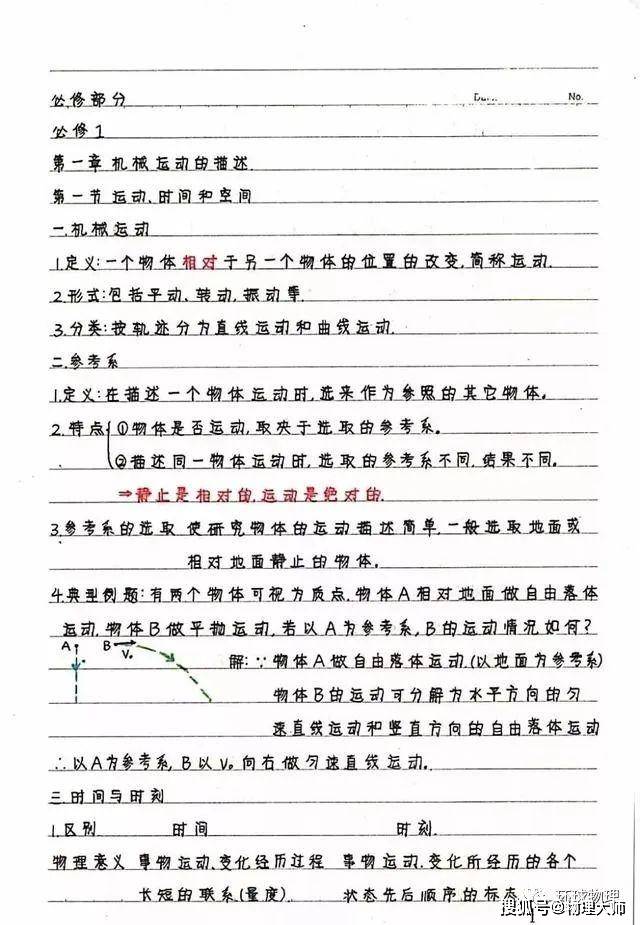 Date. No.
必修部分
必修1
第一章 机械运动的描述.
第一节 运动、时间和空间
一.机械运动
1.定义:一个物体相对于另一个物体的位置的改变,简称运动.
2.形式:包括平动、转动,振动等.
3.分类:按轨迹分为直线运动和曲线运动.
二.参考系
1.定义:在描述一个物体运动时,选来作为参照的其它物体。
2.特点 ①物体是否运动,取决于选取的参考系。
②描述同一物体运动时,选取的参考系不同,结果不同.
⇒静止是相对的,运动是绝对的.
3.参考系的选取 使研究物体的运动描述简单,一般选取地面或
相对地面静止的物体。
4.典型例题:有两个物体可视为质点.物体A相对地面做自由落体
运动,物体B做平抛运动,若以A为参考系,B的运动情况如何?
A B V₀
解:∵物体A做自由落体运动.(以地面为参考系)
物体B的运动可分解为水平方向的匀
速直线运动和竖直方向的自由落体运动
∴以A为参考系,B以V₀向右做匀速直线运动。
三.时间与时刻
1.区别 时间 时刻.
物理意义 事物运动、变化经历过程 事物运动.变化所经历的各个
长短的联系(量度). 状态先后顺序的标志
1
环球物理
搜狐号@物理大师